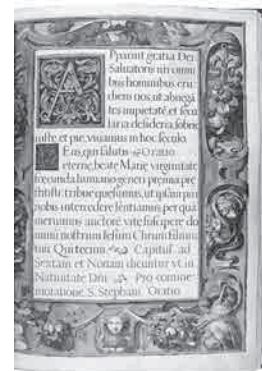 Apparuit gratia Dei
Saluatoris nri omni
bus hominibus, eru
diens nos, ut abnegā
tes impietatē, et secu
laria desideria, sobrie
iuste, et pie, viuamus in hoc seculo.
Deus, qui salutis Oratio
eterne, beate Marie virginitate
fecunda, humano generi premia pre
stitisti: tribue quesumus, ut ipsam pro
nobis intercedere sentiamus, per quā
meruimus auctorē vite suscipere do
minū nostrum Iesum Christum filium
tuū Qui tecum Capituľ ad
Sextam et Nonam dicuntur vt in
Natiuitate Dni Pro comme
moratione S. Stephani Oratio